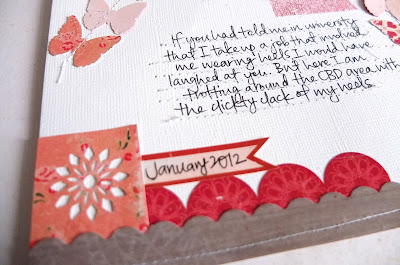 ..If you had told me in university
that I take up a job that involved
me wearing heels I would have
laughed at you. But here I am
trotting around the CBD area with
the clickty clack of my heels.
January 2012